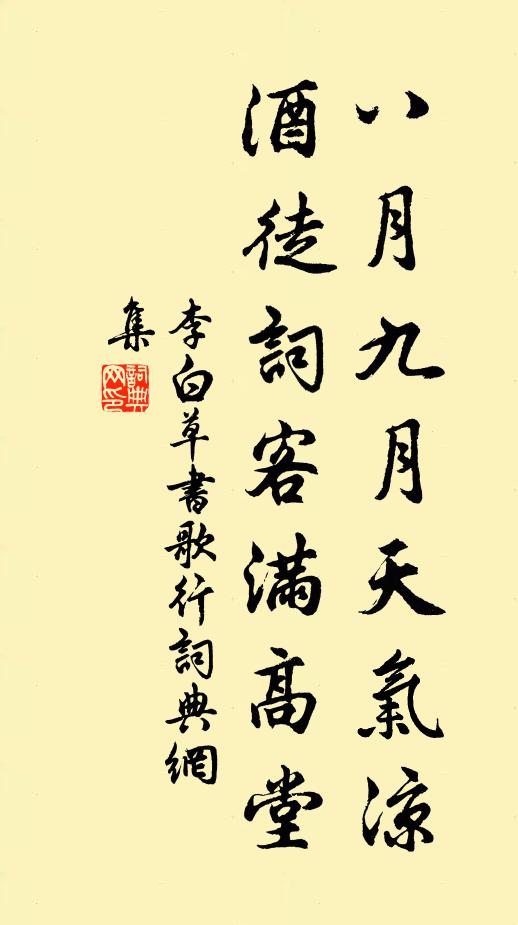 八月九月天氣涼
酒徒詞客滿高堂
李白草書歌行詞典網
集
詞典网印